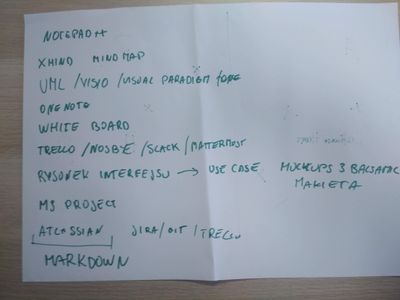 NOTEPAD++
XMIND MINDMAP
UML / VISIO / VISUAL PARADIGM
ONENOTE
WHITE BOARD
TRELLO / NOSBE / SLACK / MATTERMOST
RYSUNEK INTERFEJSU → USE CASE MOCKUPS 3 BALSAMIC
MAKIETA
MS PROJECT
ATLASSIAN JIRA / GIT / TRELLO
MARKDOWN